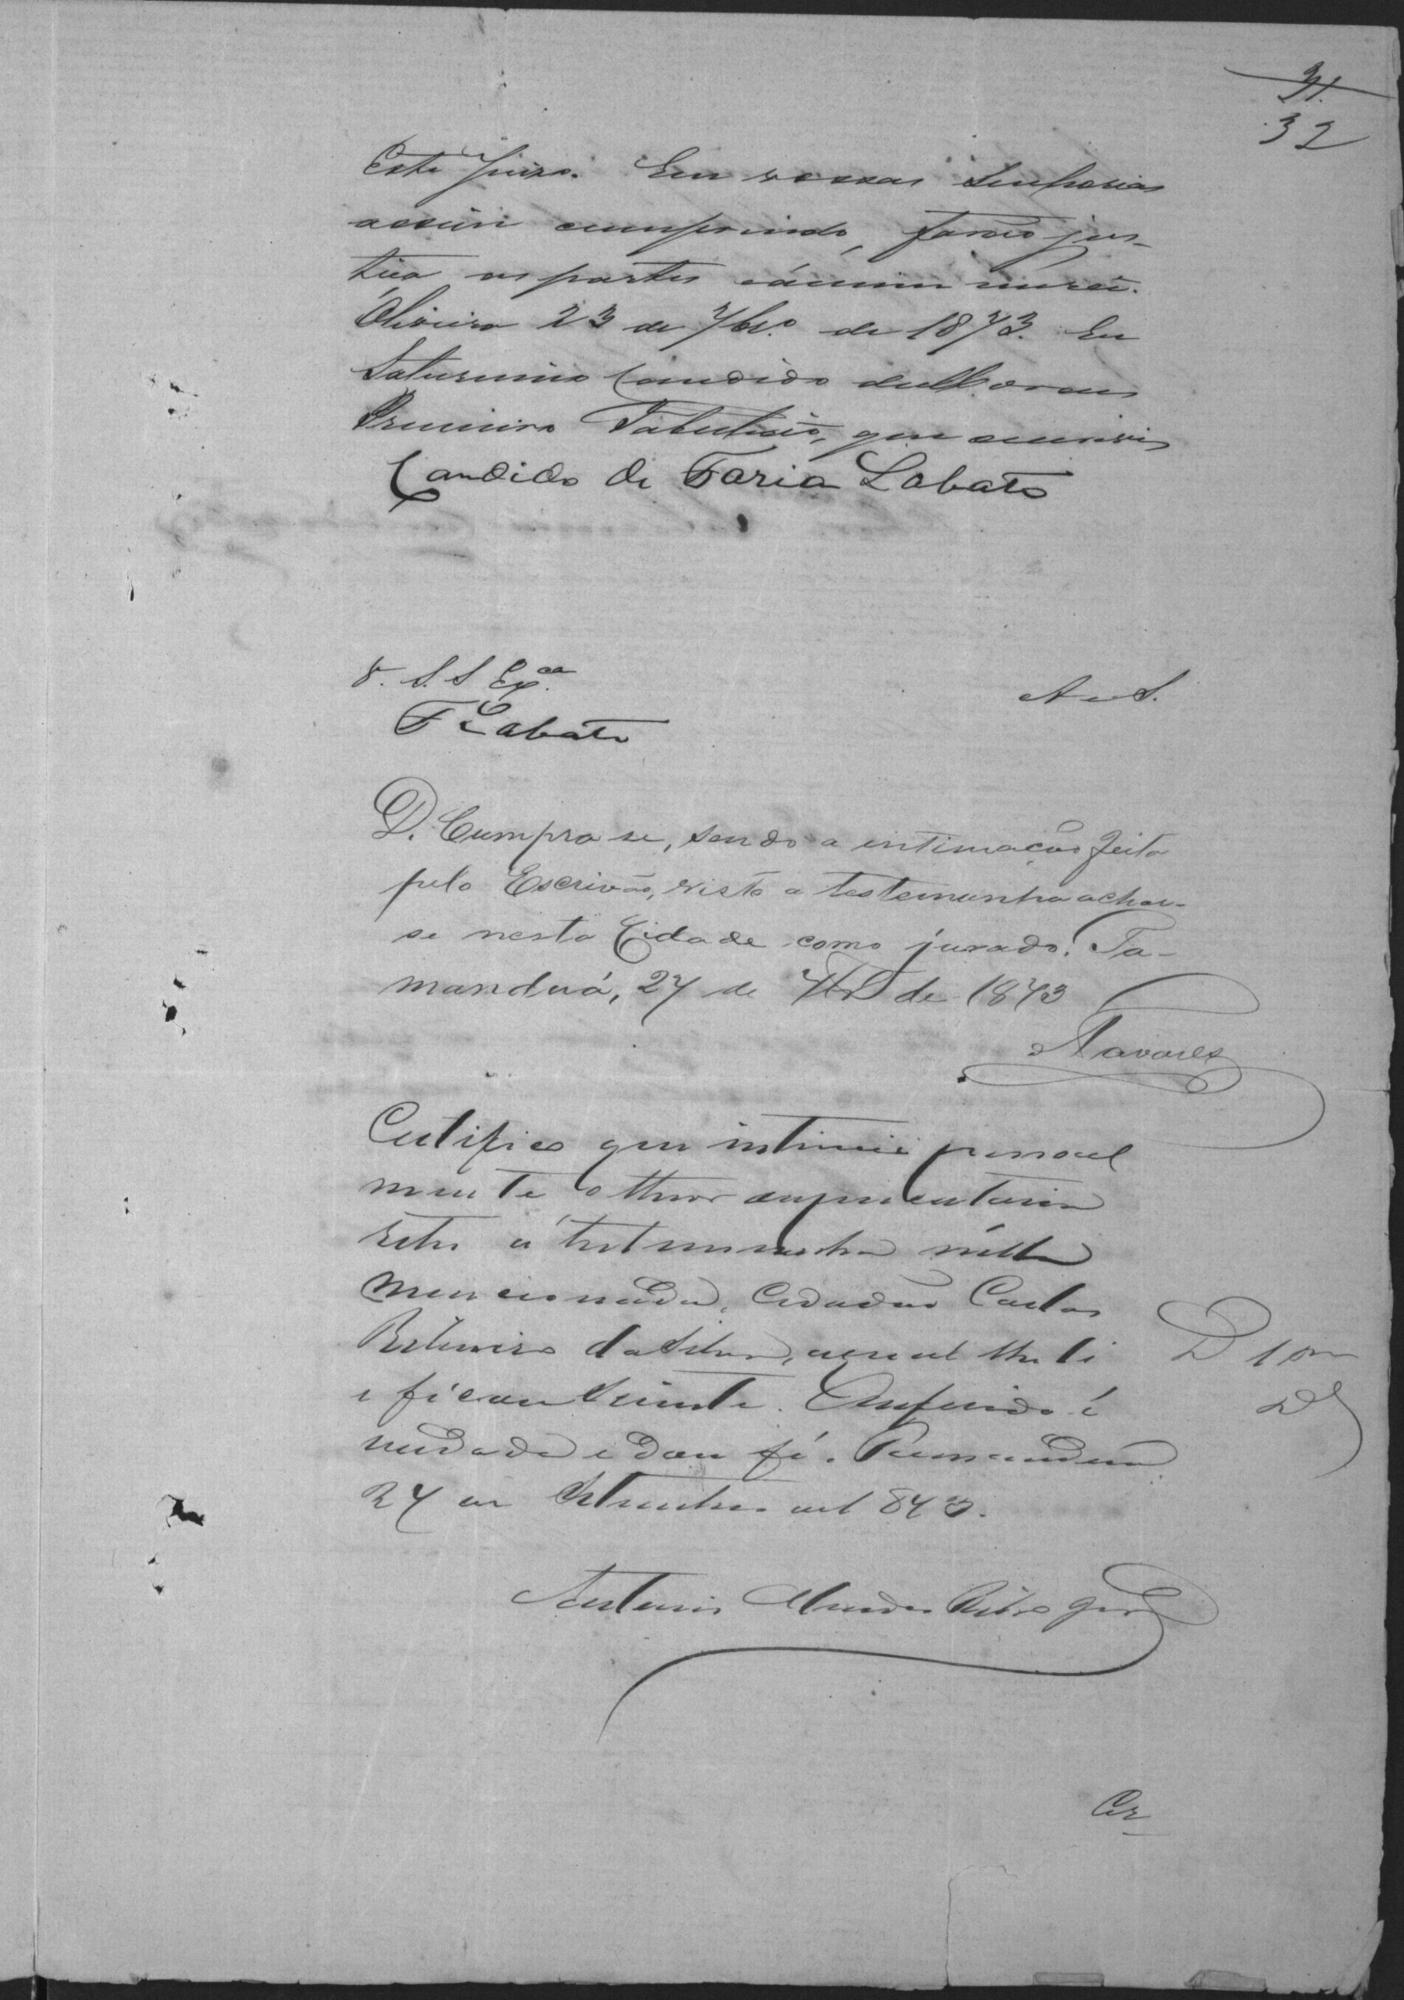 31.
32
Este Juizo. Em vossas Senhorias
assim cumprindo, farão jus-
tiça as partes e á mim mercê.
Oliveira 23 de 7br.o de 1873. Eu
Saturnino Candido de Moraes
Primeiro Tabelião, que escrevi
Candido de Faria Lobato
V. S. S Ex.ca
F Lobato
D. Cumpra se, sendo a intimação feita
pelo Escrivão, visto a testemunha achar-
se nesta Cidade como jurado. Ta-
manduá, 27 de 7br de 1873
Tavares
Certifico que intimei pessoal
mente o theor da precatoria
retro á testemunha nella
mencionada, Cidadão Carlos
Ribeiro da Silva, a qual lhe li
e ficou sciente. O referido é
verdade e dou fé. Tamanduá
27 de Setembro de 1873.
Antonio Mendes Ribro
Cer